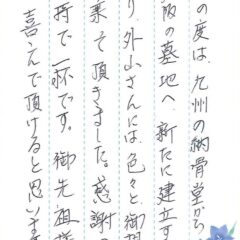 の度は、九州の納骨堂から
阪の墓地へ新たに建立す
り、外山さんには、色々と御相
業そて頂きました。感謝の
持で一杯です。御先祖様
喜えで頂けると思います